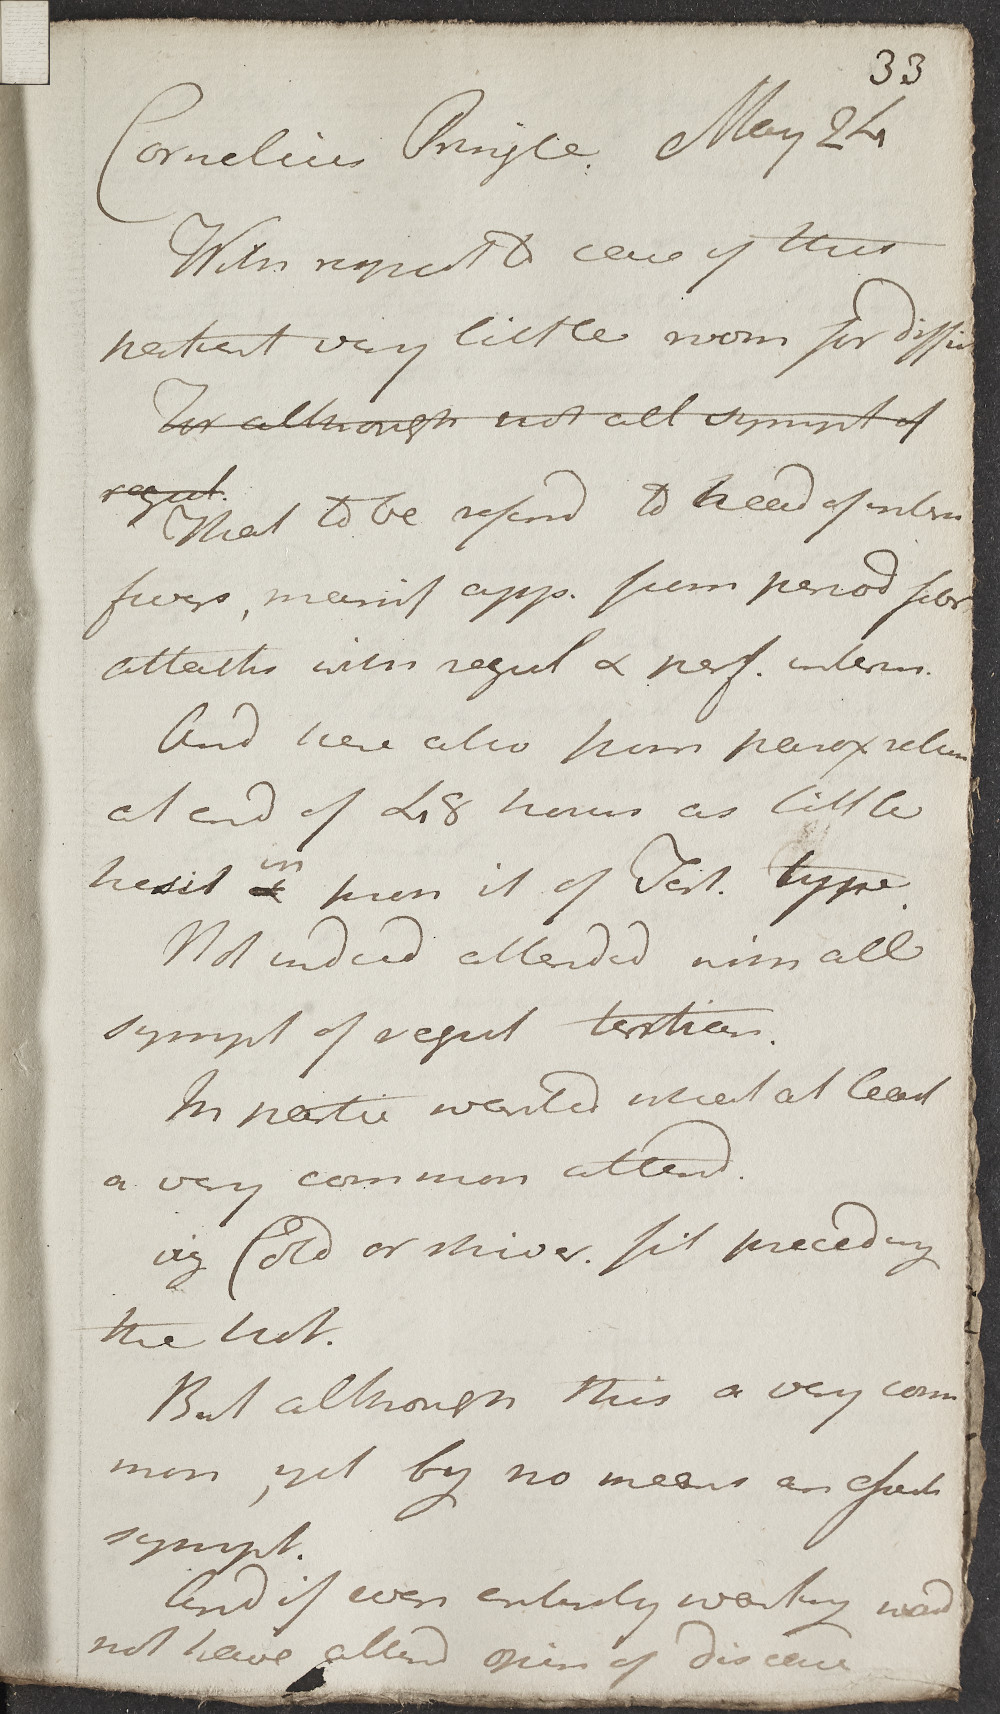 33
Cornelius Pringle. May 24
With respect to case of this
patient very little room for diffic
For although not all sympt of
regul.
That to be referd to head of interm
fevers, manif app. from period febr
attacks with regul & perf. interm.
And here also from parox return
at end of 48 hours as little
hesit in pron it of Tert. type.
Not indeed attended with all
sympt of regul tertian.
In partic wanted what at least
a very common attend.
viz Cold or shiver. fit preceding
the hot.
But although this a very com
mon, yet by no means an essent
sympt.
And if even entirely wanting woud
not have alterd opin of disease